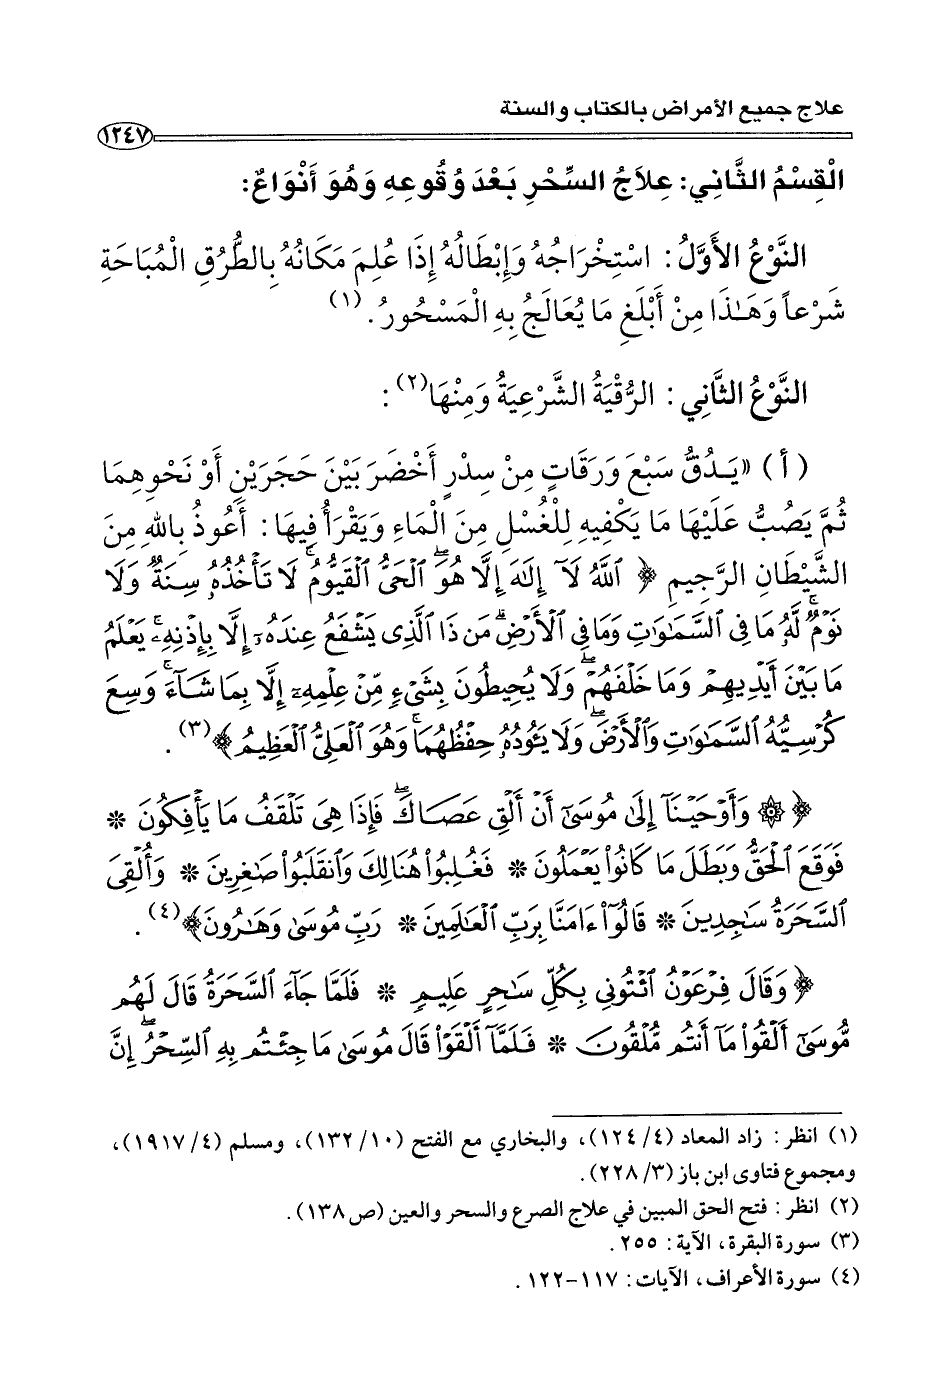 علاج جميع الأمراض بالكتاب والسنة
١٢٤٧
الْقِسْمُ الثَّانِي: عِلاَجُ السِّحْرِ بَعْدَ وُقُوعِهِ وَهُوَ أَنْوَاعٌ:
النَّوْعُ الأَوَّلُ: اسْتِخْرَاجُهُ وَإِبْطَالُهُ إِذَا عُلِمَ مَكَانُهُ بِالطُّرُقِ الْمُبَاحَةِ
شَرْعاً وَهَـٰذَا مِنْ أَبْلَغِ مَا يُعَالَجُ بِهِ الْمَسْحُورُ. (١)
النَّوْعُ الثَّانِي: الرُّقْيَةُ الشَّرْعِيَةُ وَمِنْهَا(٢):
(أ) «يَدُقُّ سَبْعَ وَرَقَاتٍ مِنْ سِدْرٍ أَخْضَرَ بَيْنَ حَجَرَيْنِ أَوْ نَحْوِهِمَا
ثُمَّ يَصُبُّ عَلَيْهَا مَا يَكْفِيهِ لِلْغُسْلِ مِنَ الْمَاءِ وَيَقْرَأُ فِيهَا: أَعُوذُ بِاللهِ مِنَ
الشَّيْطَانِ الرَّجِيمِ ﴿ ٱللَّهُ لَآ إِلَٰهَ إِلَّا هُوَ ۖ ٱلْحَىُّ ٱلْقَيُّومُ ۚ لَا تَأْخُذُهُۥ سِنَةٌ وَلَا
نَوْمٌ ۚ لَّهُۥ مَا فِى ٱلسَّمَٰوَٰتِ وَمَا فِى ٱلْأَرْضِ ۗ مَن ذَا ٱلَّذِى يَشْفَعُ عِندَهُۥٓ إِلَّا بِإِذْنِهِۦ ۚ يَعْلَمُ
مَا بَيْنَ أَيْدِيهِمْ وَمَا خَلْفَهُمْ ۖ وَلَا يُحِيطُونَ بِشَىْءٍ مِّنْ عِلْمِهِۦٓ إِلَّا بِمَا شَآءَ ۚ وَسِعَ
كُرْسِيُّهُ ٱلسَّمَٰوَٰتِ وَٱلْأَرْضَ ۖ وَلَا يَـُٔودُهُۥ حِفْظُهُمَا ۚ وَهُوَ ٱلْعَلِىُّ ٱلْعَظِيمُ ﴾(٣).
﴿ ۞ وَأَوْحَيْنَآ إِلَىٰ مُوسَىٰٓ أَنْ أَلْقِ عَصَاكَ ۖ فَإِذَا هِىَ تَلْقَفُ مَا يَأْفِكُونَ *
فَوَقَعَ ٱلْحَقُّ وَبَطَلَ مَا كَانُوا۟ يَعْمَلُونَ * فَغُلِبُوا۟ هُنَالِكَ وَٱنقَلَبُوا۟ صَٰغِرِينَ * وَأُلْقِىَ
ٱلسَّحَرَةُ سَٰجِدِينَ * قَالُوٓا۟ ءَامَنَّا بِرَبِّ ٱلْعَٰلَمِينَ * رَبِّ مُوسَىٰ وَهَٰرُونَ ﴾(٤).
﴿ وَقَالَ فِرْعَوْنُ ٱئْتُونِى بِكُلِّ سَٰحِرٍ عَلِيمٍ * فَلَمَّا جَآءَ ٱلسَّحَرَةُ قَالَ لَهُم
مُّوسَىٰٓ أَلْقُوا۟ مَآ أَنتُم مُّلْقُونَ * فَلَمَّآ أَلْقَوْا۟ قَالَ مُوسَىٰ مَا جِئْتُم بِهِ ٱلسِّحْرُ ۖ إِنَّ
(١) انظر: زاد المعاد (٤/ ١٢٤)، والبخاري مع الفتح (١٠/ ١٣٢)، ومسلم (٤/ ١٩١٧)،
ومجموع فتاوى ابن باز (٣/ ٢٢٨).
(٢) انظر: فتح الحق المبين في علاج الصرع والسحر والعين (ص١٣٨).
(٣) سورة البقرة، الآية: ٢٥٥.
(٤) سورة الأعراف، الآيات: ١١٧-١٢٢.